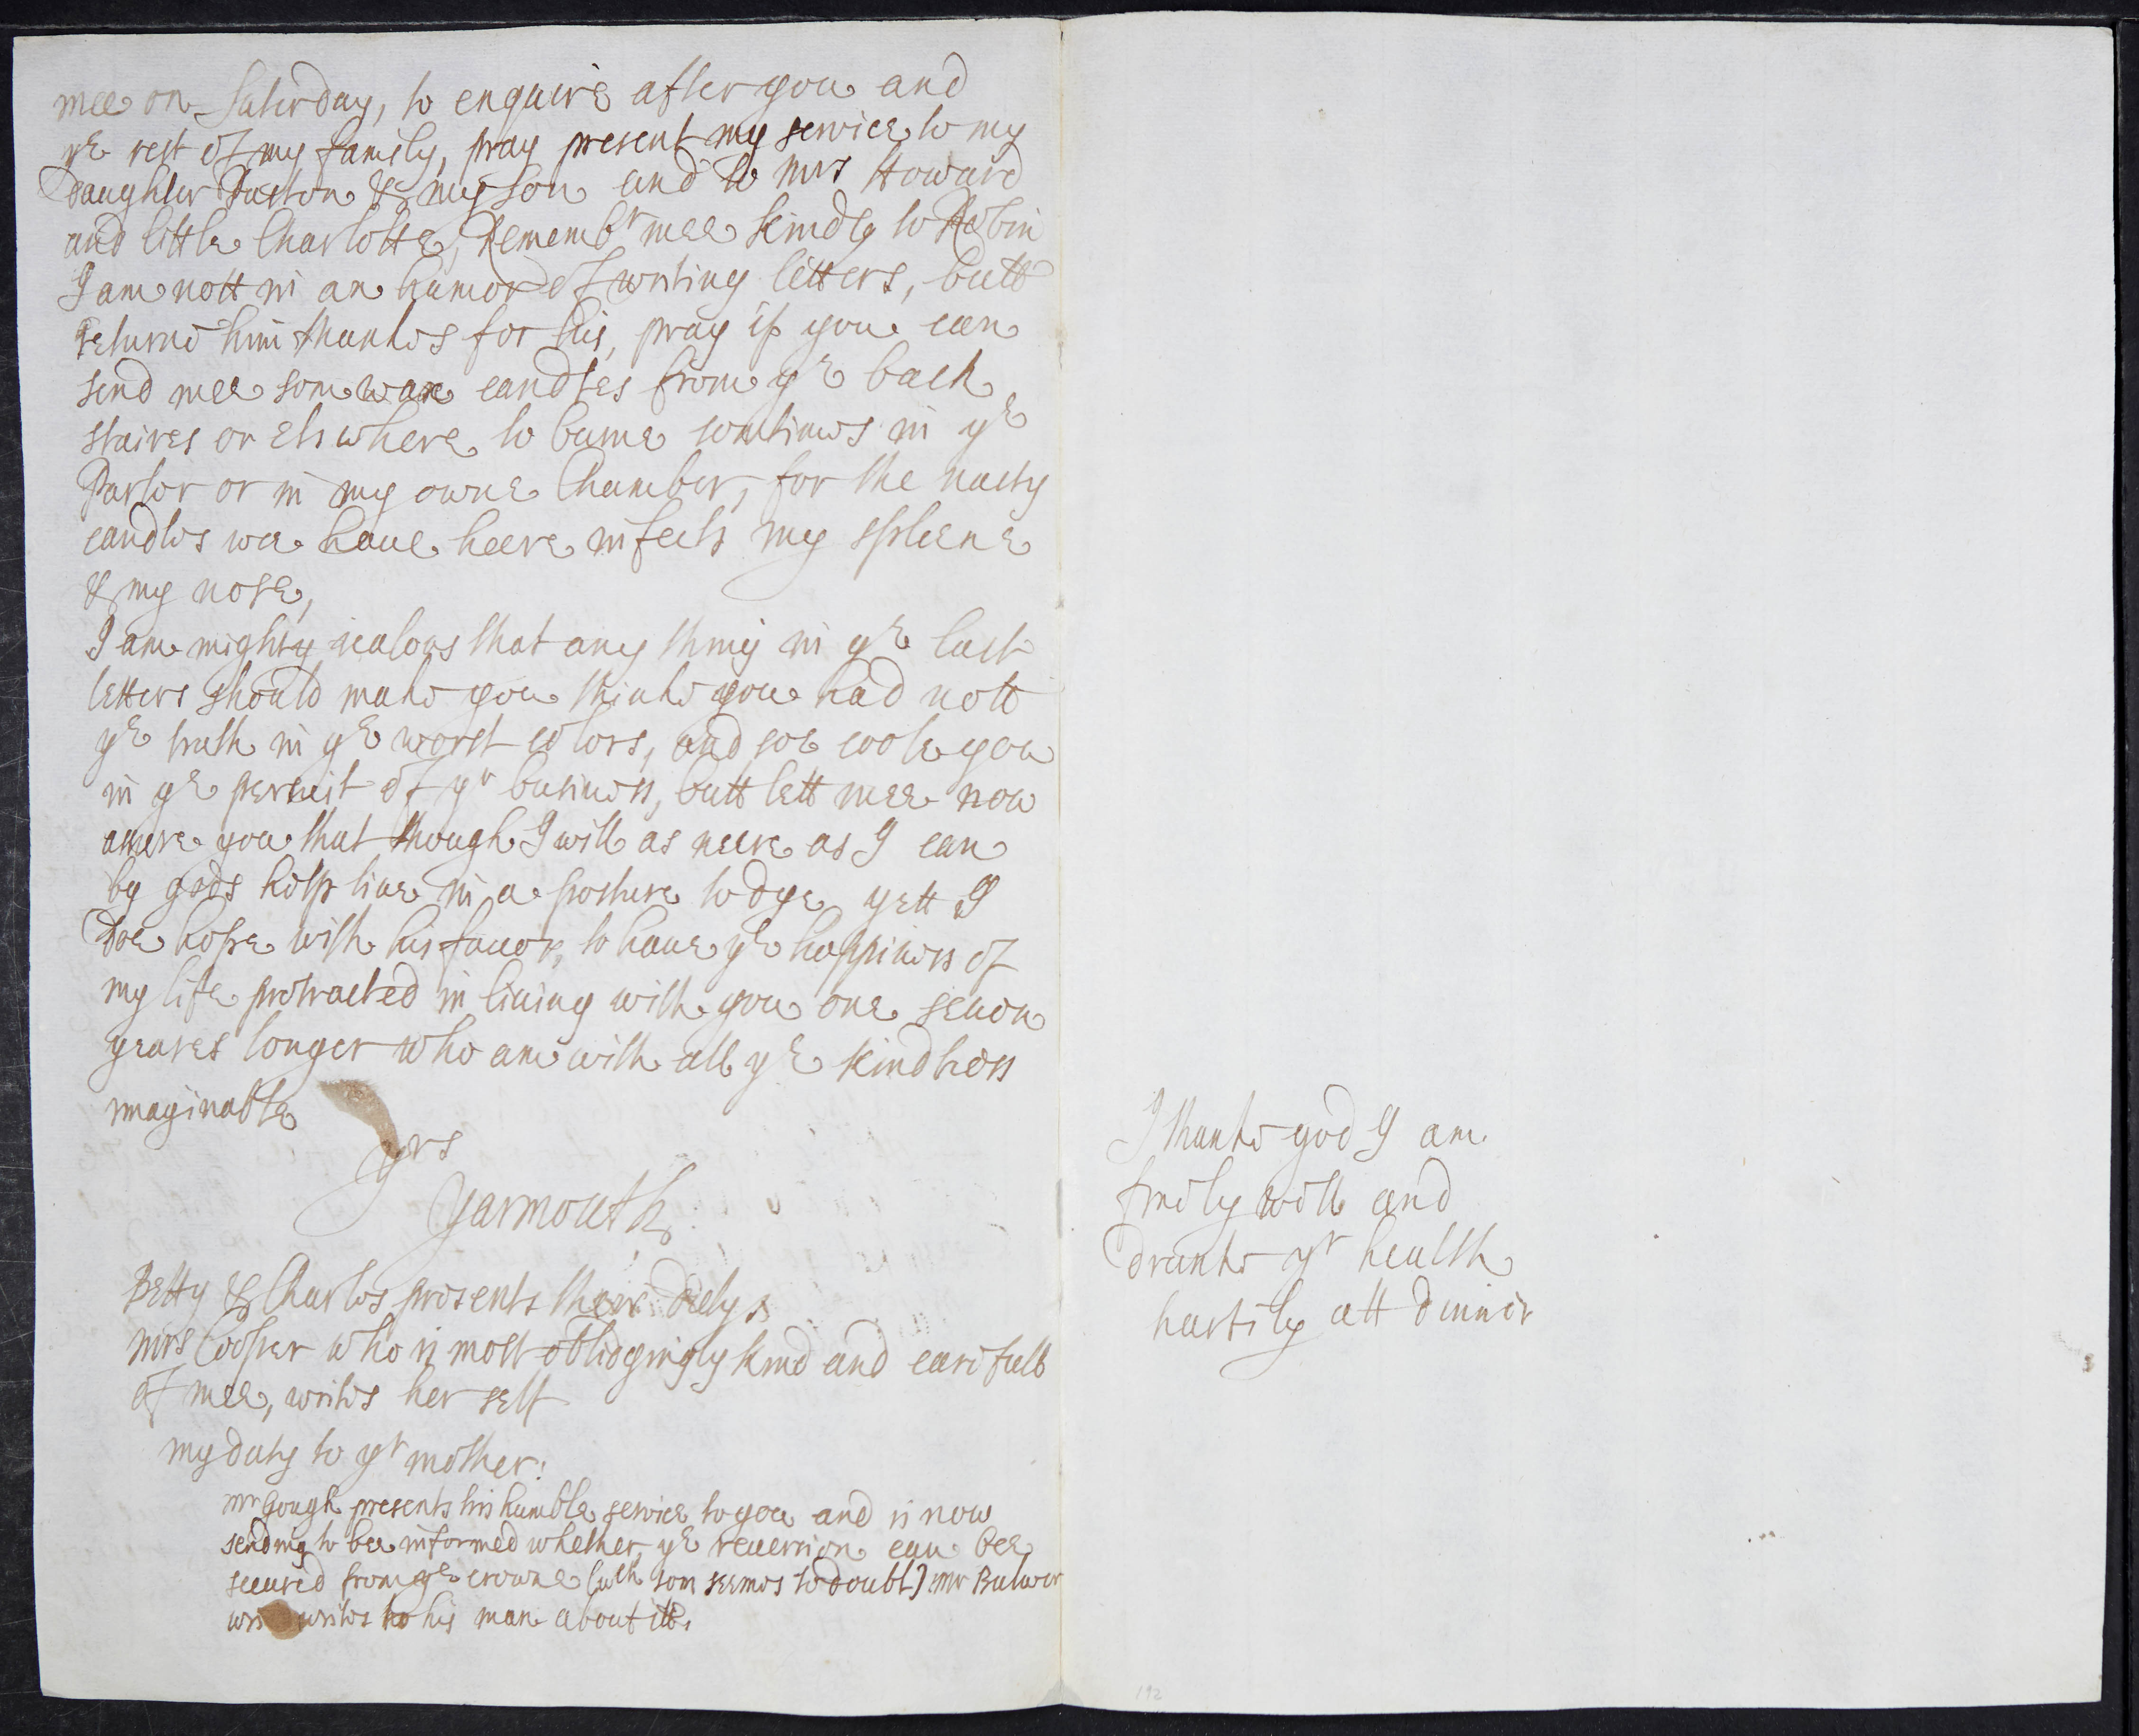 mee on Saturday, to enquire after you and
ye rest of my family, pray present my service to my
Daughter Paston & my son and to mrs Howard
and little Charlotte, Remembr mee kindly to Robin
I am nott in an humor of writing letters, butt
returne him thankes for his, pray if you can
send mee som wax candles from ye back
staires or elswhere to burne somtimes in ye
Parlor or in my owne Chamber, for the nasty
candles wee haue heere infects my spleene
& my nose,
I am mighty iealous that any thing in ye last
letters should make you thinke you had nott
ye truth in ye worst colors, and soe coole you
in ye persuit of yr busines, butt lett mee now
assure you that though I will as neere as I can
by gods help liue in a posture to dye yett I
Doe hope with his fauor, to haue ye happines of
my life protracted in liuing with you one seuen
yeares longer who am with all ye kindness
imaginable
yrs
Yarmouth
Betty & Charles presents their Duty,
mrs Cooper who is most oblidgingly kind and carefull
of mee, writes her self
my duty to yr mother:
mr Gough presents his humble service to you and is now
sending to bee informed whether ye reuersion can bee
secured from ye crowne (wch som seemes to doubt) mr Bulwer
wri writes to his man about itt.
I thanke god I am
finely well and
drunke yr health
hartily att dinner
192